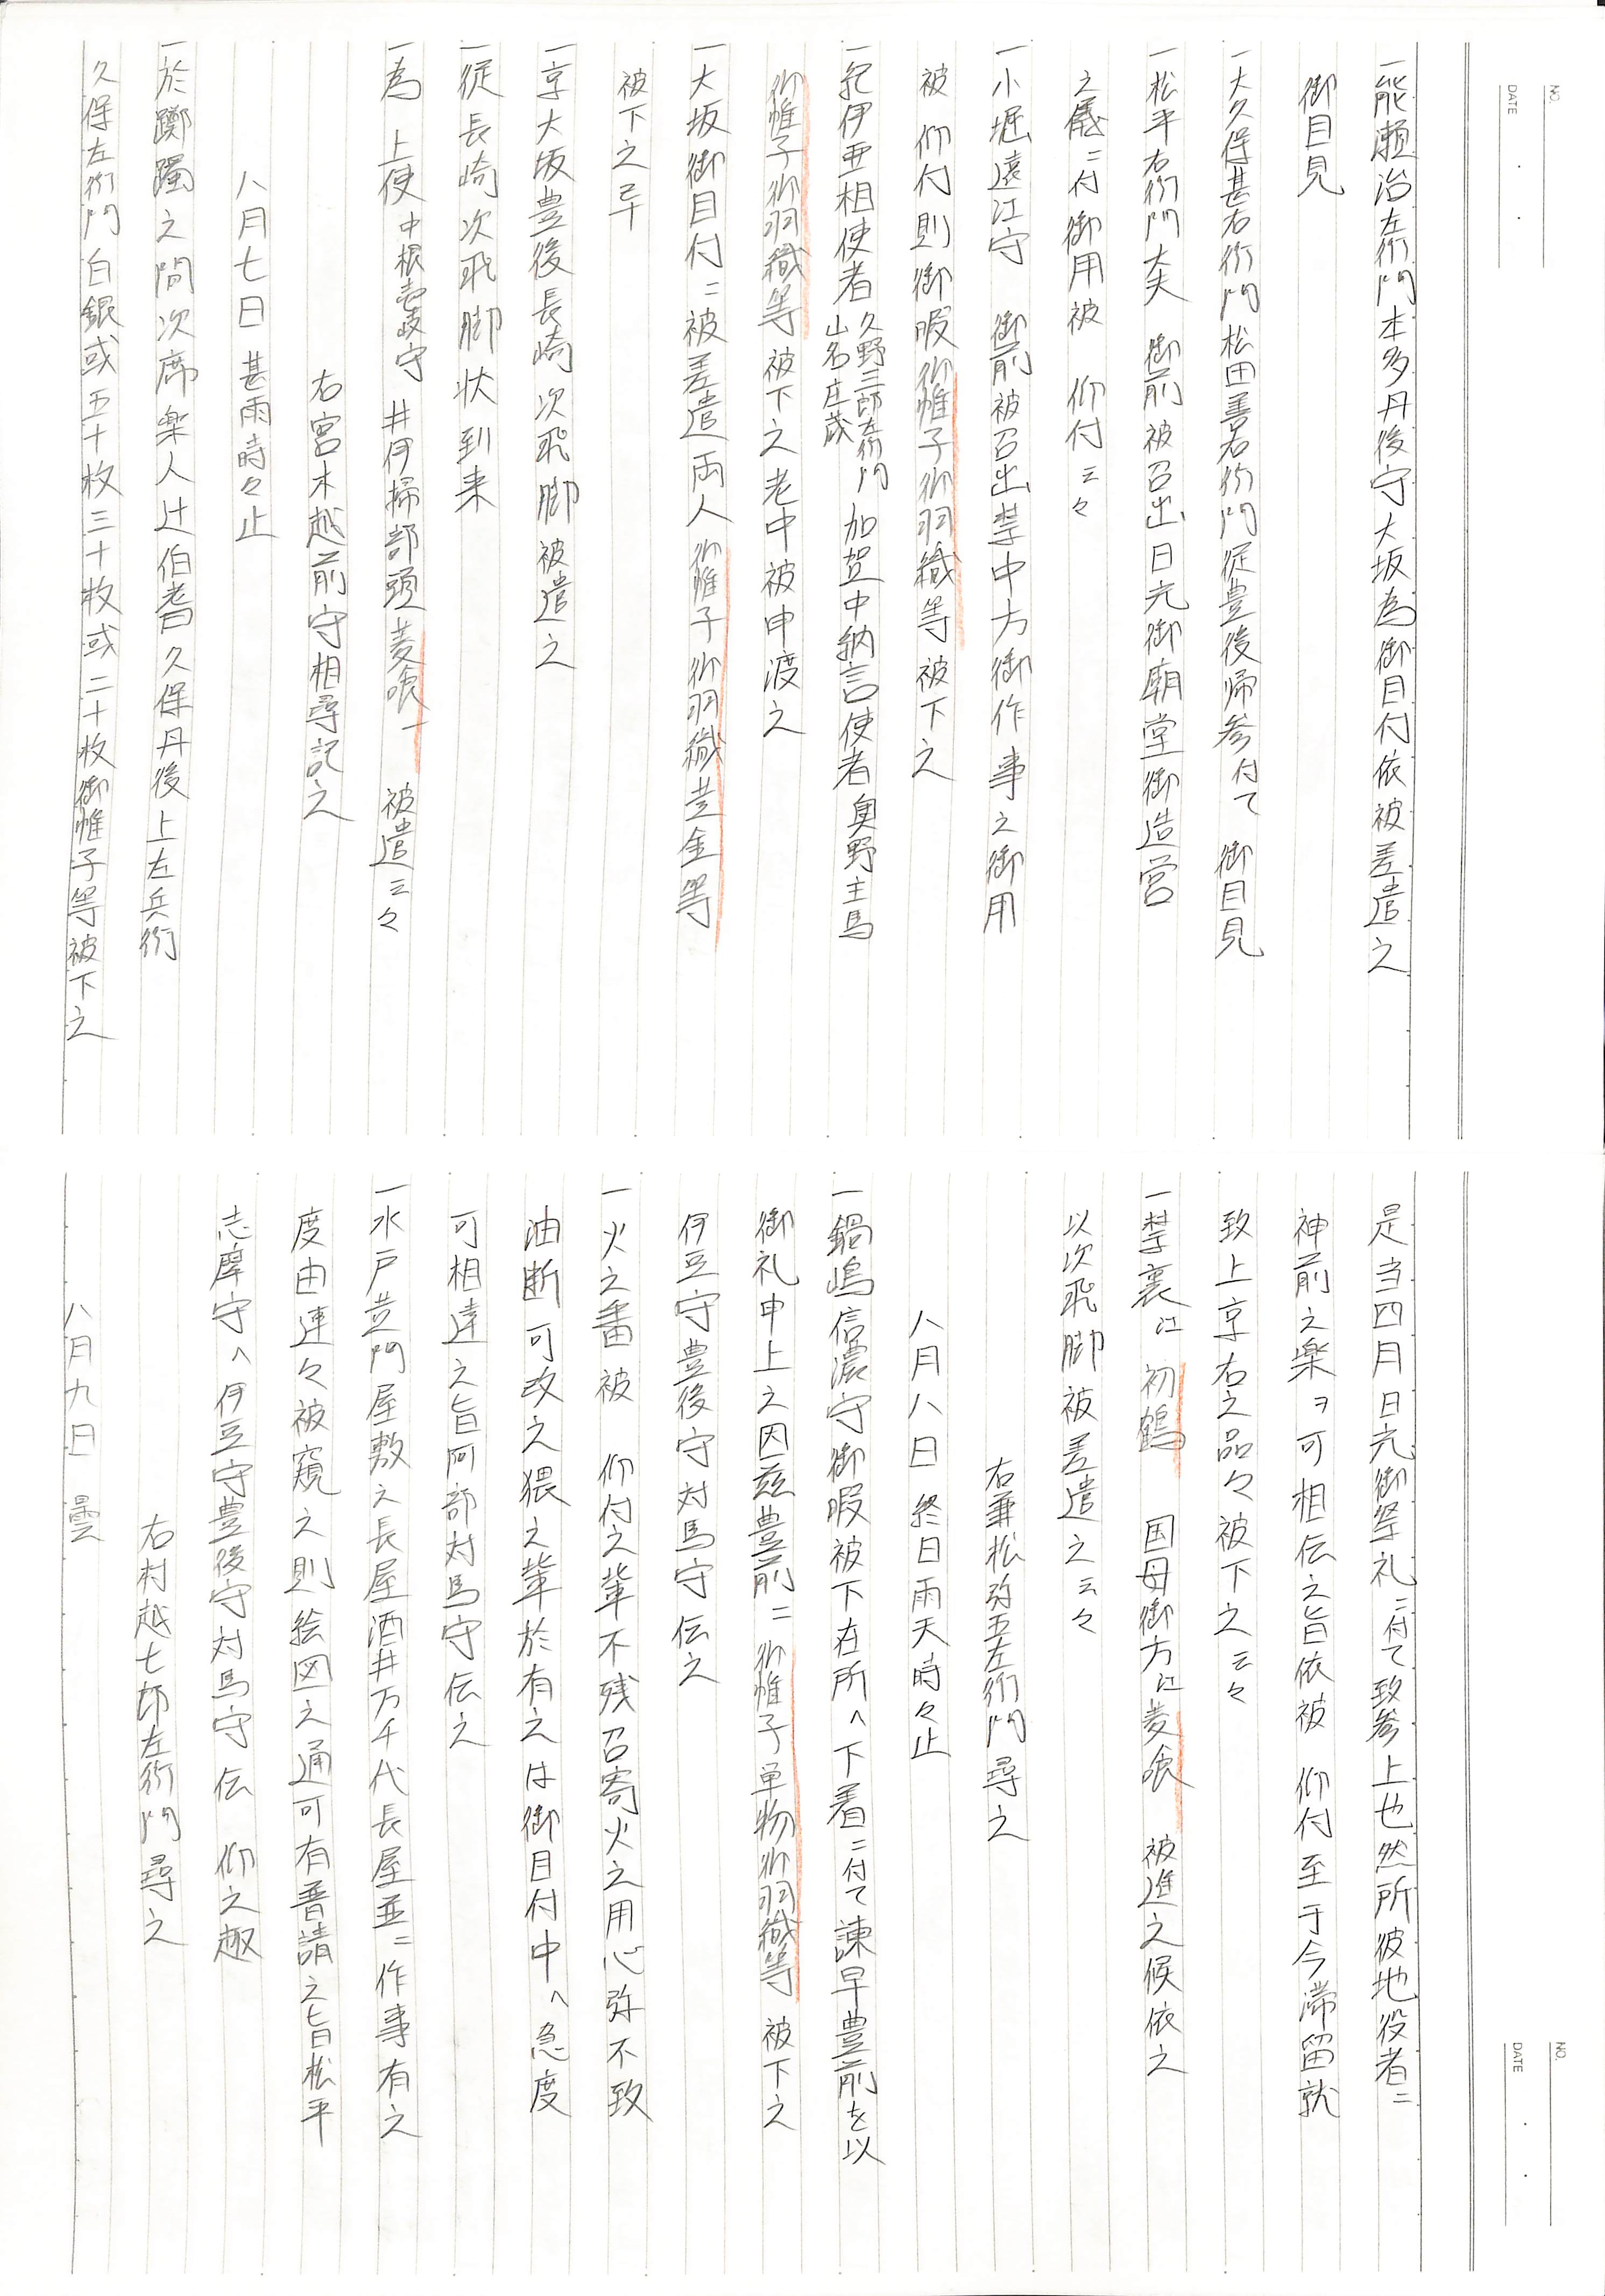 NO.
DATE
一能瀬治左衛門本多丹後守大坂為御目付依被差遣之
御目見
一大久保甚右衛門松田善右衛門従豊後帰参付て　御目見
一松平右衛門大夫　御前被召出日光御廟堂御造営
之儀ニ付御用被　仰付云々
一小堀遠江守　御前被召出禁中方御作事之御用
被　仰付則御暇御帷子御羽織等被下之
一紀伊亜相使者久野三郎左衛門山名庄蔵　加賀中納言使者奥野主馬
御帷子御羽織等被下之老中被申渡之
一大坂御目付ニ被差遣両人御帷子御羽織並金等
被下之
一京大坂豊後長崎次飛脚被遣之
一従長崎次飛脚状到来
一為　上使中根壱岐守　井伊掃部頭菱喰一　被遣云々
右宮木越前守相尋記之
八月七日　甚雨時々止
一於躑躅之間次席楽人辻伯耆久保丹後上左兵衛
久保左衛門白銀或五十枚三十枚或二十枚御帷子等被下之
NO.
DATE
是当四月日光御祭礼ニ付て致参上也然所彼地役者ニ
神前之楽ヲ可相伝之旨依被　仰付至于今滞留就
致上京右之品々被下之云々
一禁裏江初鶴　国母御方江菱喰　被進之候依之
以次飛脚被差遣之云々
右兼松弥五左衛門尋之
八月八日　終日雨天時々止
一鍋嶋信濃守御暇被下在所へ下着ニ付て諫早豊前を以
御礼申上之因茲豊前ニ御帷子単物御羽織等被下之
伊豆守豊後守対馬守伝之
一火之番被　仰付之輩不残召寄火之用心弥不致
油断可改之猥之輩於有之は御目付中へ急度
可相達之旨阿部対馬守伝之
一水戸並門屋敷之長屋酒井万千代長屋並ニ作事有之
度由連々被窺之則絵図之通可有普請之旨松平
志摩守へ伊豆守豊後守対馬守伝　仰之趣
右村越七郎左衛門尋之
八月九日　曇